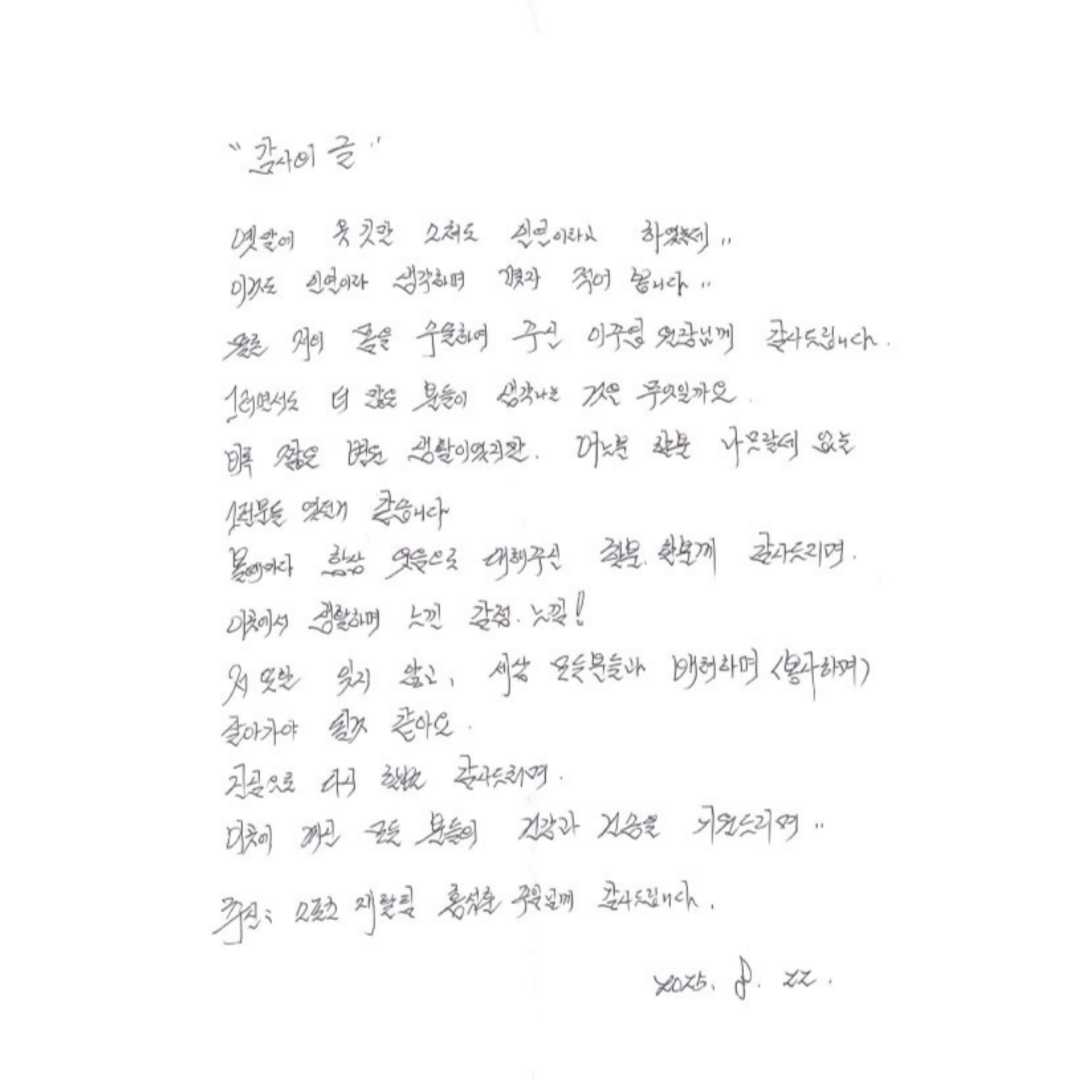 "감사의 글"
옛말에 옷 깃만 스쳐도 인연이라고 하였는데..
이것도 인연이라 생각하며 몇자 적어 봅니다..
물론 저의 몸을 수술하여 주신 이주엽 원장님께 감사드립니다.
그러면서도 더 많은 분들이 생각나는 것은 무엇일까요.
비록 짧은 병원 생활이였지만. 어느분 한분 나무랄데 없는
그런분들 였던거 같습니다
볼때마다 항상 웃음으로 대해주신 한분. 한분께 감사드리며.
이곳에서 생활하며 느낀 감정. 느낌!
저 또한 잊지 않고, 세상 모든분들과 배려하며 (봉사하며)
살아가야 될것 같아요.
진심으로 다시 한번 감사드리며.
이곳에 계신 모든 분들의 건강과 건승을 기원드리며..
추신: 스포츠 재활팀 홍석훈 주임님께 감사드립니다.
2025. 8. 22.